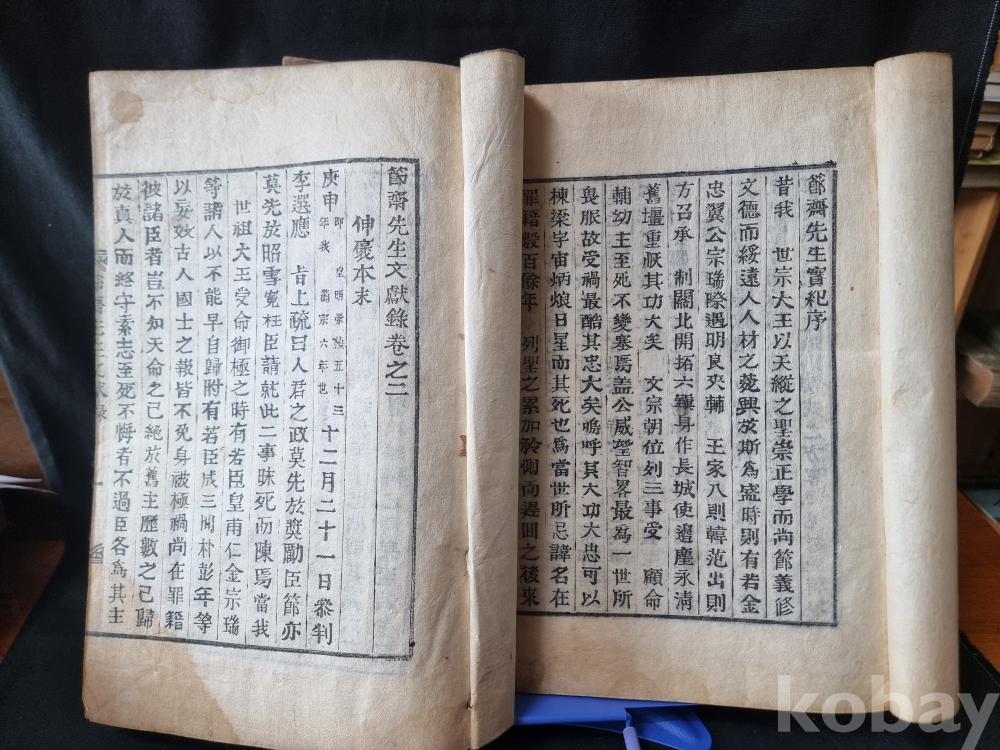 節齋先生實紀序
昔我 世宗大王以天縱之聖崇正學而尚節義修
文德而綏遠人人材之蔚興於斯爲盛時則有若金
忠翼公宗瑞際遇明良夾輔 王家入則韓范出則
方召承 制關北開拓六鎭身作長城使邊塵永淸
舊壃重恢其功大矣 文宗朝位列三事受 顧命
輔幼主至死不變塞焉盖公威望智畧最爲一世所
畏服故受禍最酷其忠大矣嗚呼其大功大忠可以
棟梁宇宙炳烺日星而其死也爲當世所忌諱名在
罪籍數百餘年 列聖之累加矜惻尚遲回之後來
節齋先生文獻錄卷之二
伸褒本末
庚申 即 皇明崇禎五十三年我 肅宗六年也 十二月二十一日叅判
李選應 旨上疏曰人君之政莫先於奬勵臣節亦
莫先於昭雪寃枉臣請就此二事昧死而陳焉當我
世祖大王受命御極之時有若臣皇甫仁金宗瑞
等諸人以不能早自歸附有若臣成三問朴彭年等
以妄效古人國士之報皆不免身被極禍尚在罪籍
彼諸臣者豈不知天命之已絶於舊主歷數之已歸
於真人而終守素志至死不悔者不過臣各爲其主
kobay